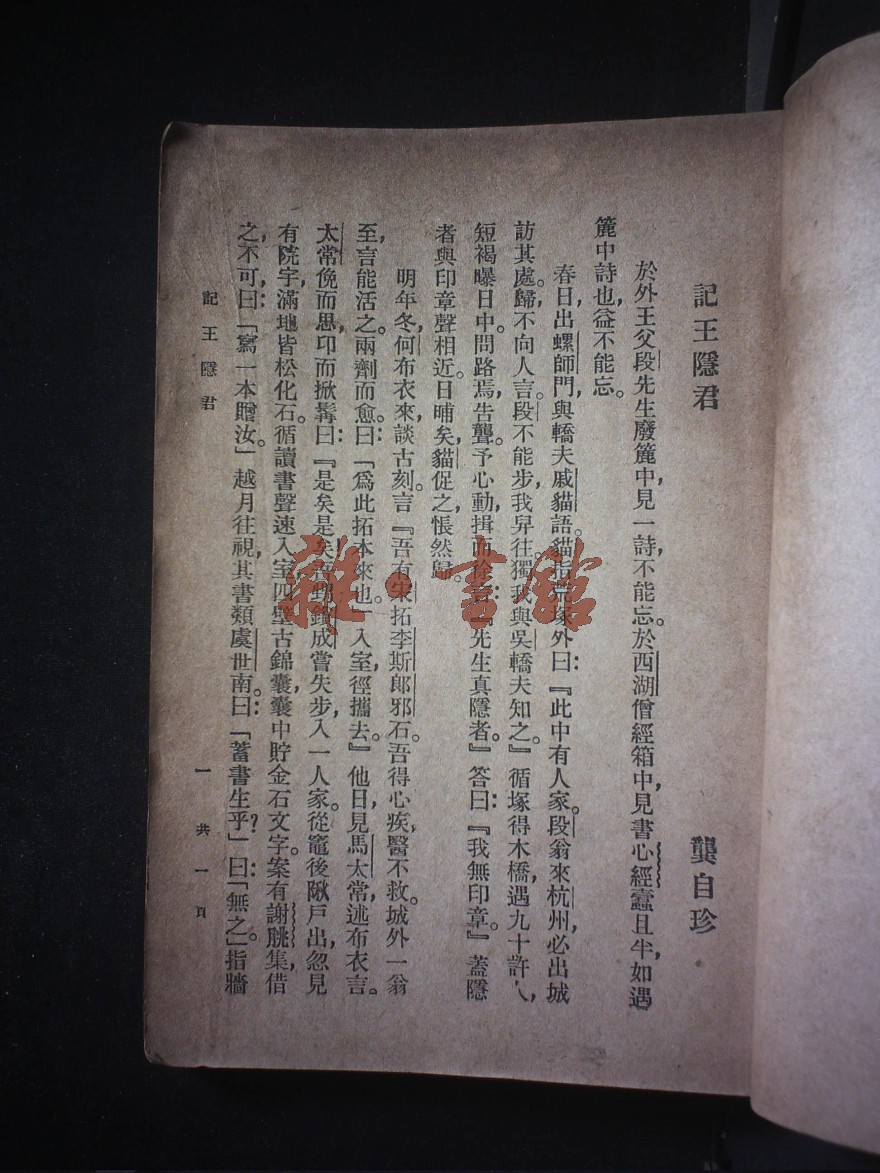 記王隱君 龔自珍
於外王父段先生廢簏中，見一詩，不能忘。於西湖僧經箱中，見書心經蠹且半，如遇
簏中詩也，益不能忘。
春日，出螺師門，與轎夫戚貓語。貓指荒塚外曰：『此中有人家。段翁來杭州，必出城
訪其處。歸，不向人言。段不能步，我舁往，獨我與吳轎夫知之。』循塚得木橋，遇九十許人，
短褐曝日中。問路焉，告聾。予心動，揖而徐言：『先生真隱者。』答曰：『我無印章。』蓋隱
者與印章聲相近。日晡矣，貓促之，悵然歸。
明年冬，何布衣來，談古刻。言『吾有宋拓李斯郎邪石。吾得心疾，醫不救。城外一翁
至，言能活之。兩劑而愈。曰：「爲此拓本來也。」入室，徑攜去。』他日，見馬太常，述布衣言。
太常俛而思，卬而掀髯曰：『是矣是矣。吾甥鎖成嘗失步，入一人家。從竈後𨻳戶出，忽見
有院宇，滿地皆松化石。循讀書聲速入室，四壁古錦囊，囊中貯金石文字。案有謝朓集，借
之，不可，曰：「寫一本贈汝。」越月往視，其書類虞世南。曰：「蓄書生乎？」曰：「無之。」指牆
記王隱君
一 共一頁
雜·書館